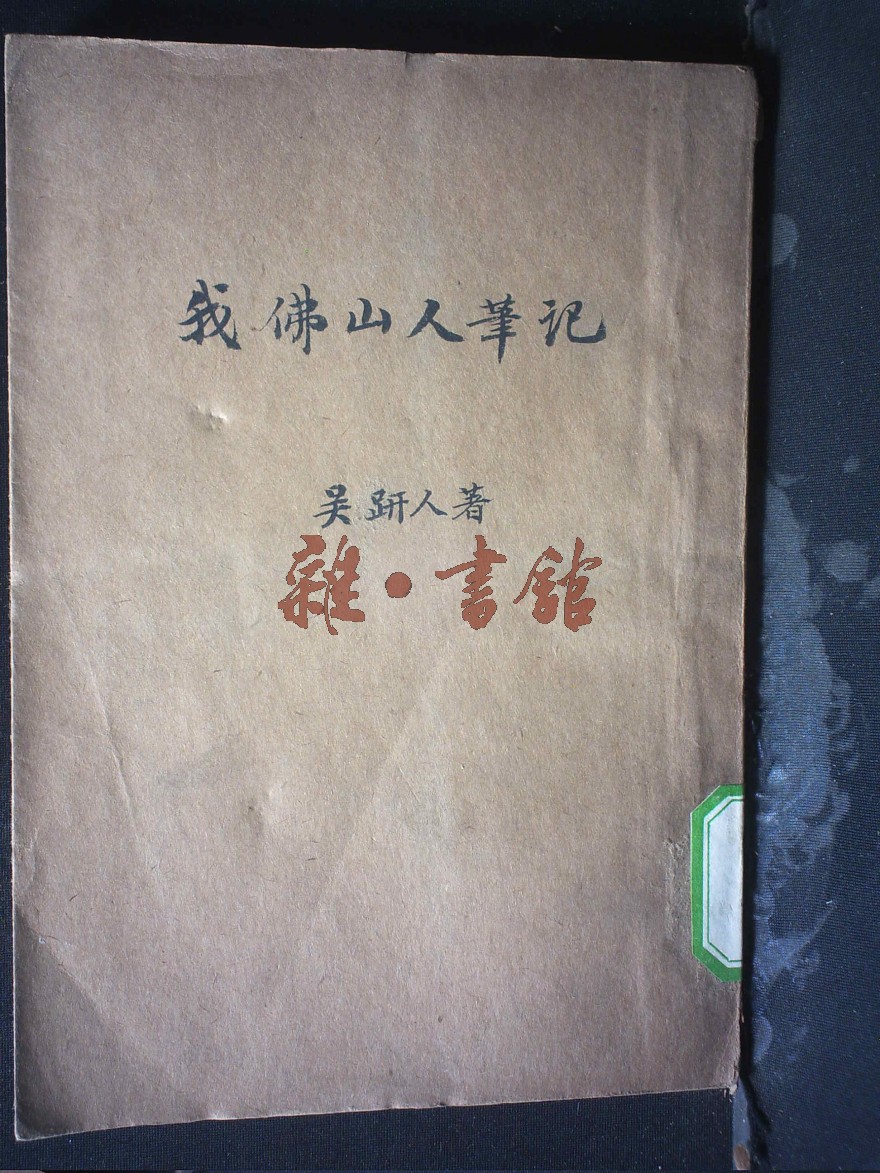 我佛山人筆记
吴趼人著
雜·書館